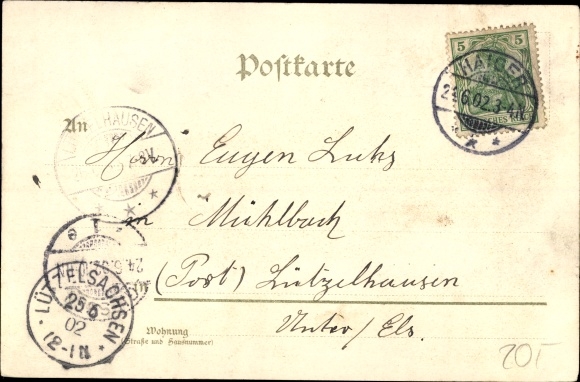 Postkarte
5
HAIGER
6.02.3-4N
An
HAUSEN
Herrn Eugen Luks
in Mühlbach
(Post) Lützelhausen
Unter/Els.
LÜTZELSACHSEN
25 6
02
12-1N
Wohnung
(Straße und Hausnummer)
20,-